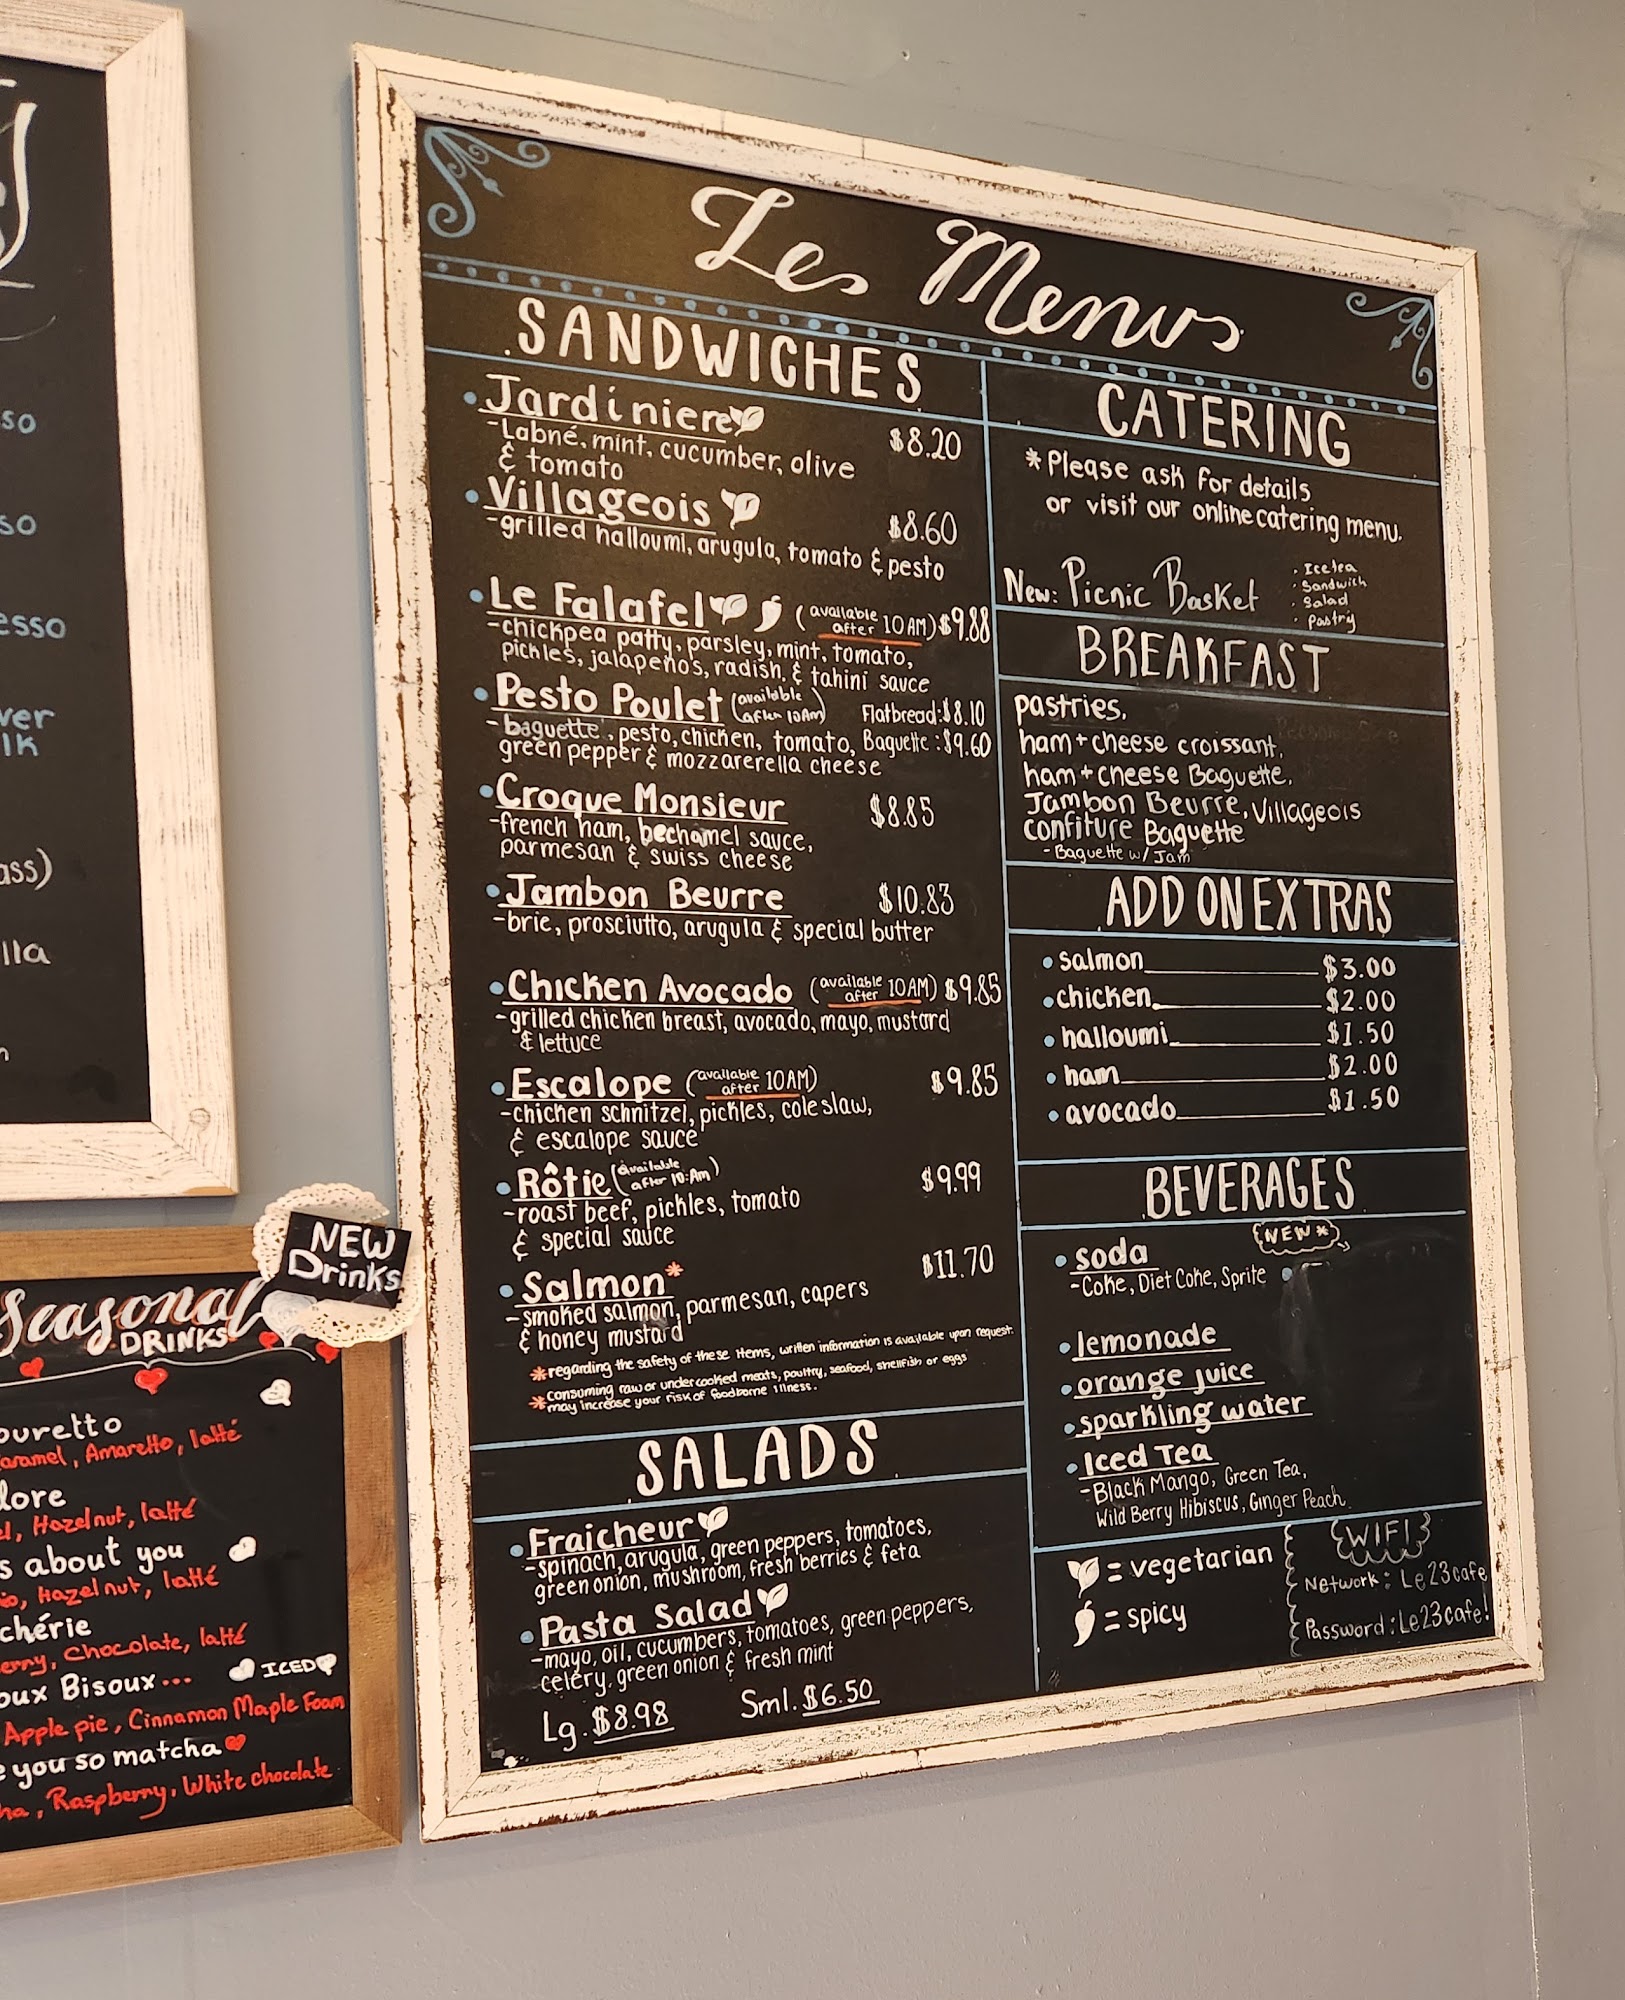 so
so
esso
ver
lk
ass)
lla
NEW
Drinks
Seasonal
DRINKS
ouretto
aramel, Amaretto, latté
dore
Hazelnut, latté
s about you
Hazelnut, latté
chérie
erry, Chocolate, latté
oux Bisoux...
ICED
Apple pie, Cinnamon Maple Foam
e you so matcha
ha, Raspberry, White chocolate
Les Menus
SANDWICHES
• Jardiniere $8.20
-Labné, mint, cucumber, olive
& tomato
• Villageois $8.60
-grilled halloumi, arugula, tomato & pesto
• Le Falafel (available after 10AM) $9.88
-chickpea patty, parsley, mint, tomato,
pickles, jalapeños, radish, & tahini sauce
• Pesto Poulet (available after 10AM) Flatbread:$8.10
-baguette, pesto, chicken, tomato, Baguette:$9.60
green pepper & mozzarerella cheese
• Croque Monsieur $8.85
-french ham, bechamel sauce,
parmesan & swiss cheese
• Jambon Beurre $10.83
-brie, prosciutto, arugula & special butter
• Chicken Avocado (available after 10AM) $9.85
-grilled chicken breast, avocado, mayo, mustard
& lettuce
• Escalope (available after 10AM) $9.85
-chicken schnitzel, pickles, coleslaw,
& escalope sauce
• Rôtie (available after 10:Am) $9.99
-roast beef, pickles, tomato
& special sauce
• Salmon* $11.70
-smoked salmon, parmesan, capers
& honey mustard
*regarding the safety of these items, written information is available upon request.
*consuming raw or undercooked meats, poultry, seafood, shellfish or eggs
*may increase your risk of foodborne illness.
SALADS
• Fraicheur
-spinach, arugula, green peppers, tomatoes,
green onion, mushroom, fresh berries & feta
• Pasta Salad
-mayo, oil, cucumbers, tomatoes, green peppers,
celery, green onion & fresh mint
Lg. $8.98 Sml. $6.50
CATERING
*Please ask for details
or visit our online catering menu.
New: Picnic Basket
• Icetea
• Sandwich
• Salad
• Pastry
BREAKFAST
pastries,
ham+cheese croissant,
ham+cheese Baguette,
Jambon Beurre, Villageois
confiture Baguette
-Baguette w/ Jam
ADD ON EXTRAS
• salmon $3.00
• chicken $2.00
• halloumi $1.50
• ham $2.00
• avocado $1.50
BEVERAGES
NEW*
• soda
-Coke, Diet Coke, Sprite
• lemonade
• orange juice
• sparkling water
• Iced Tea
-Black Mango, Green Tea,
Wild Berry Hibiscus, Ginger Peach
= vegetarian
= spicy
WIFI
Network: Le23cafe
Password: Le23cafe!